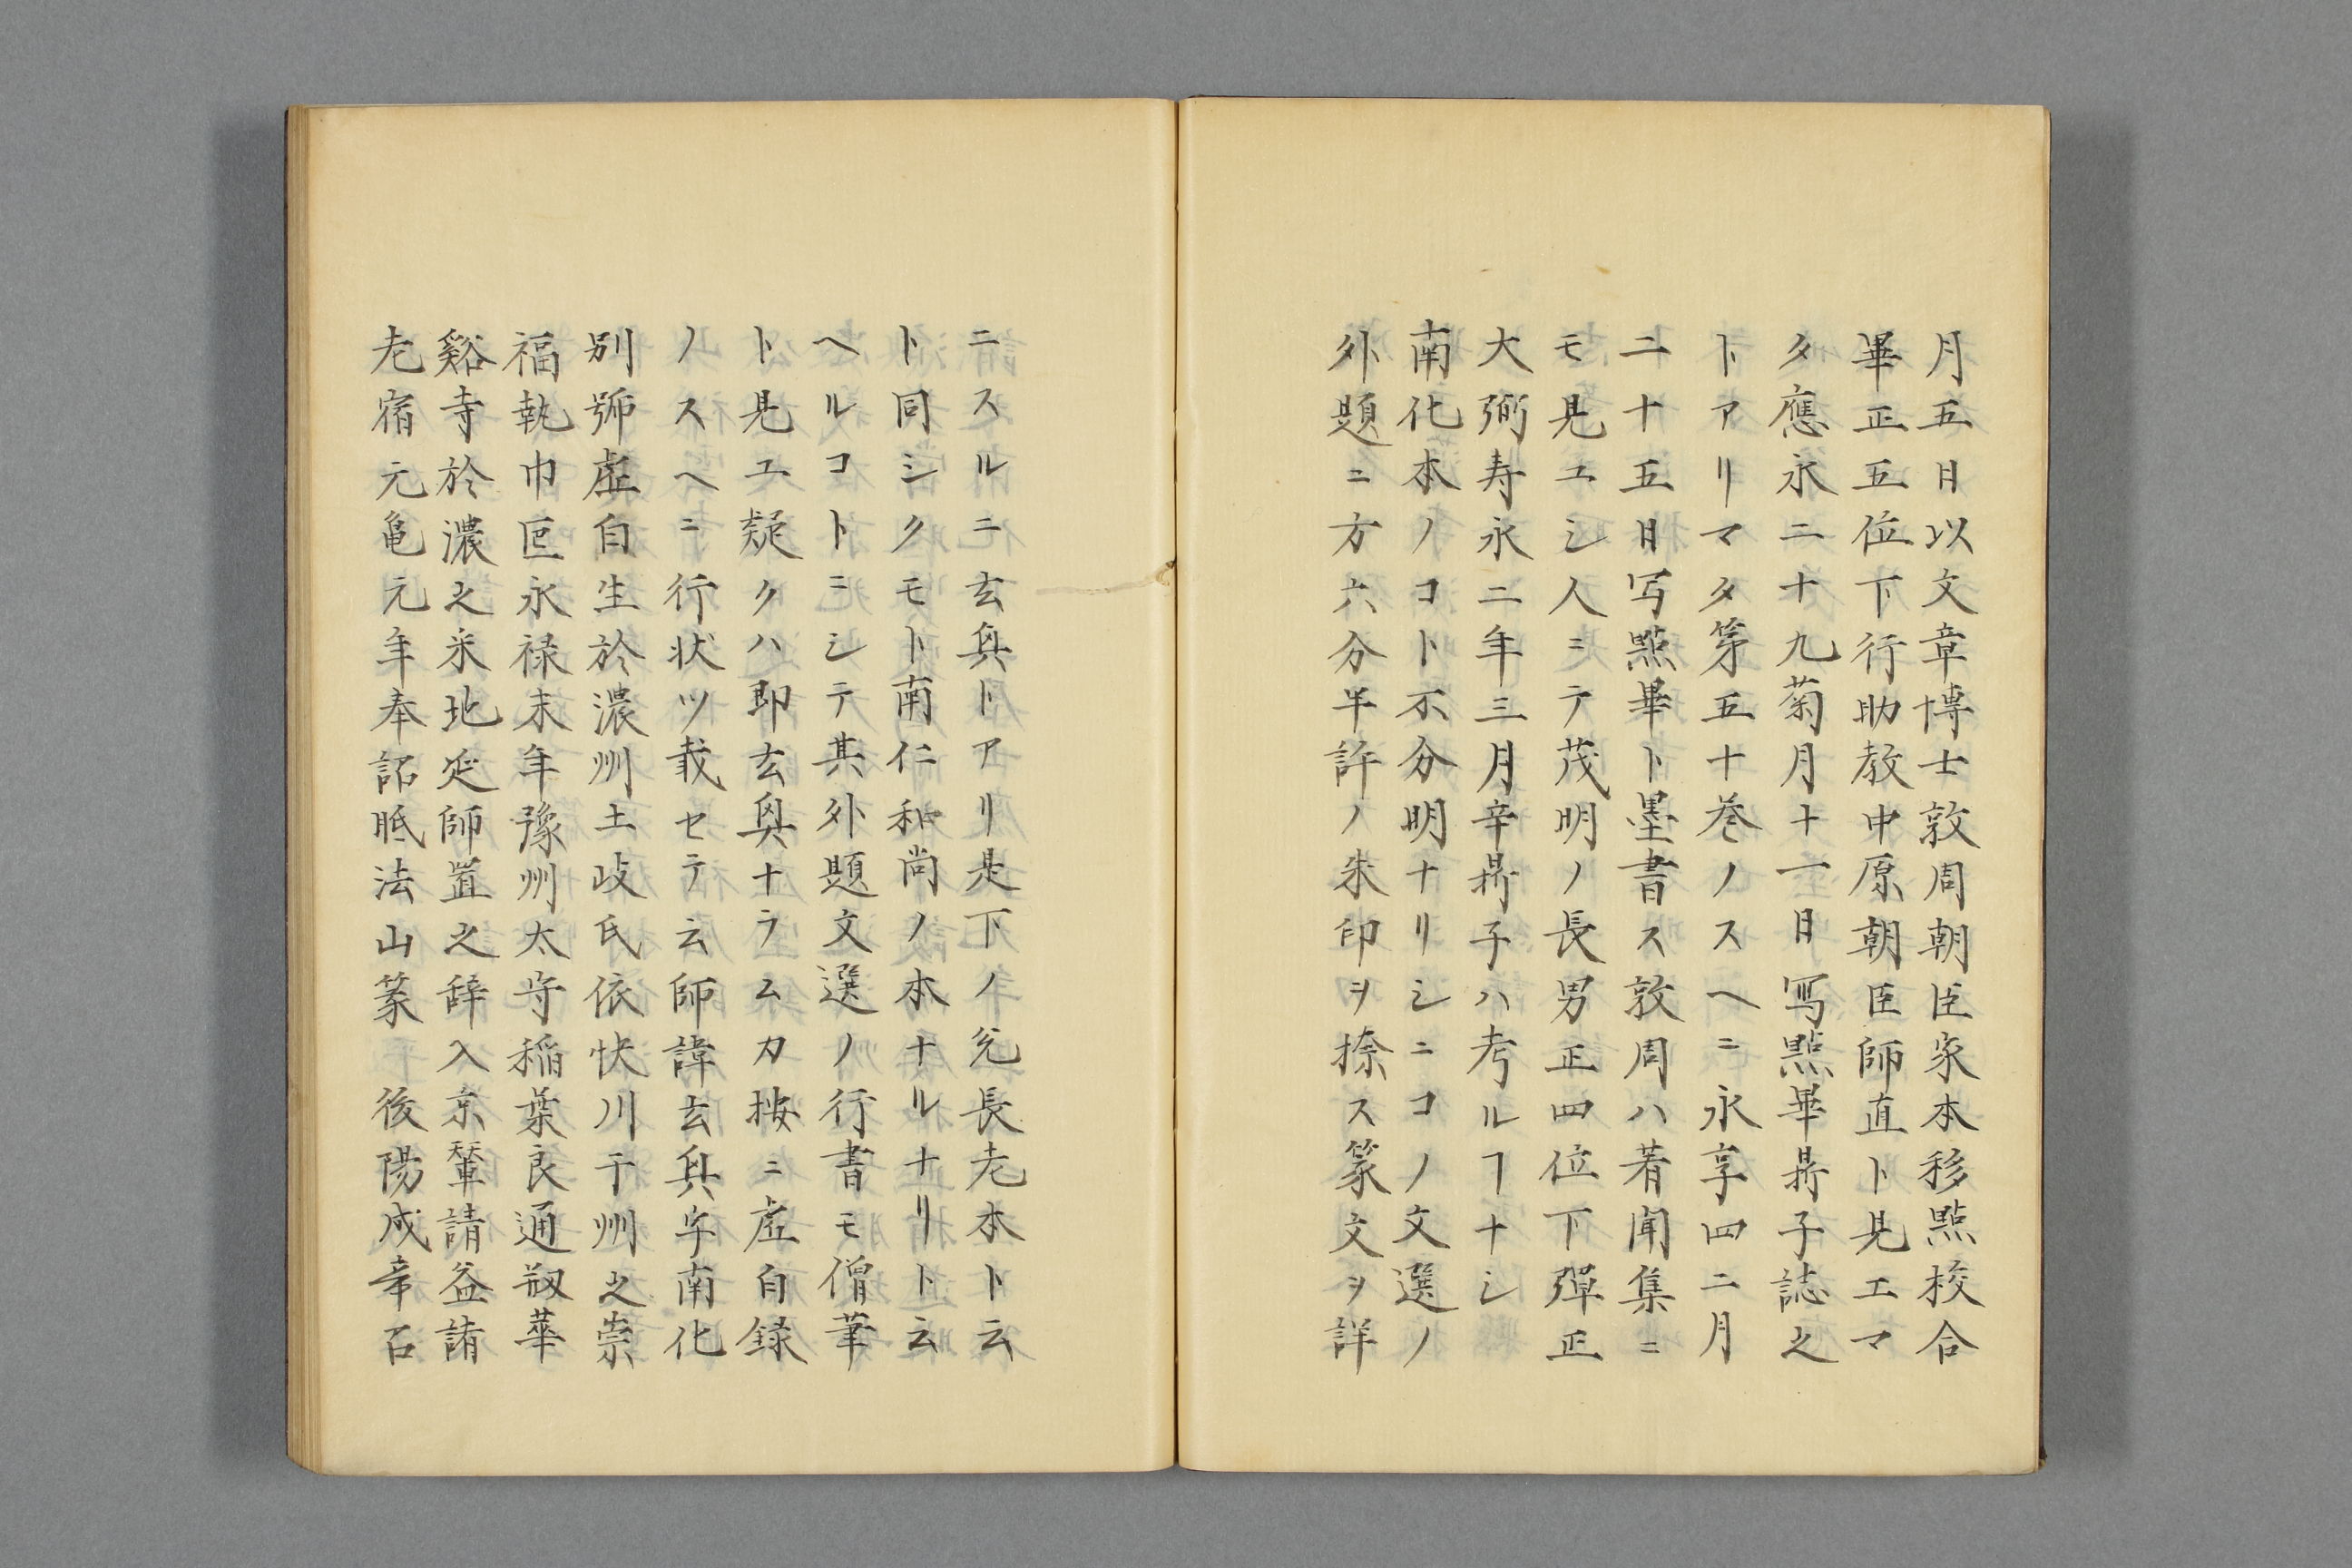 月五日以文章博士敦周朝臣家本移㸃校合
畢正五位下行助教中原朝臣師直ト見エマ
タ應永二十九菊月十一日写㸃畢昴子誌之
トアリマタ第五十巻ノスヘニ永享四二月
二十五日写㸃畢ト墨書ス敦周ハ著聞集ニ
モ見ユシ人ニテ茂明ノ長男正四位下彈正
大弼寿永二年三月辛昴子ハ考ルヿナシ
南化本ノコト不分明ナリシニコノ文選ノ
外題ニ方六分半許ノ朱印ヲ捺ス篆文ヲ詳
ニスルニ玄興トアリ是下ノ兊長老本ト云
ト同シクモト南仁和尚ノ本ナルナリト云
ヘルコトニシテ其外題文選ノ行書モ僧筆
ト見ユ疑クハ即玄興ナラムカ按ニ虚白録
ノスヘニ行状ツ載セテ云師諱玄興字南化
別號虚白生於濃州土岐氏依快川于州之崇
福執巾匜永禄末年豫州太守稲葉良通剏華
谿寺於濃之釆地延師置之辞入京輦請益諸
老宿元亀元年奉詔眂法山篆　後陽成帝召